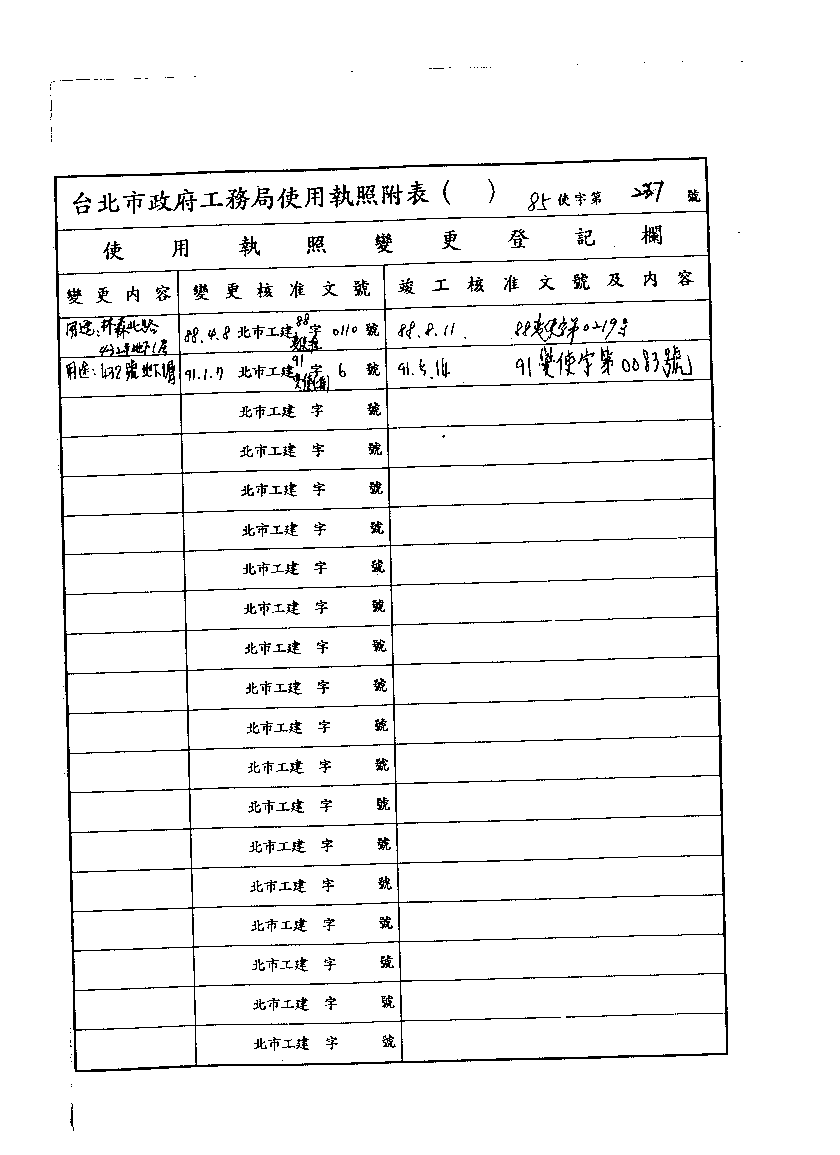 台北市政府工務局使用執照附表( ) 85使字第 237 號
使用執照變更登記欄
變更內容 變更核准文號 竣工核准文號及內容
用途:林森北路 88
432號地下1層 88.4.8 北市工建 字 0110 號 88.8.11. 88變使字第0219号
91
用途:432號地下1層 91.1.7 北市工建 字 6 號 91.5.14 91變使字第0083號
北市工建 字 號
北市工建 字 號
北市工建 字 號
北市工建 字 號
北市工建 字 號
北市工建 字 號
北市工建 字 號
北市工建 字 號
北市工建 字 號
北市工建 字 號
北市工建 字 號
北市工建 字 號
北市工建 字 號
北市工建 字 號
北市工建 字 號
北市工建 字 號
北市工建 字 號